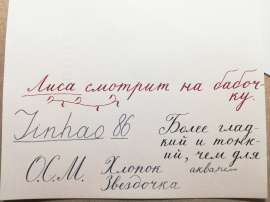 Лиса смотрит на бабоч-
ку.
Jinhao 86
Более глад-
кий и тонк-
ий, чем для
акваре
О.С.М.
Хлопок
Звездочка